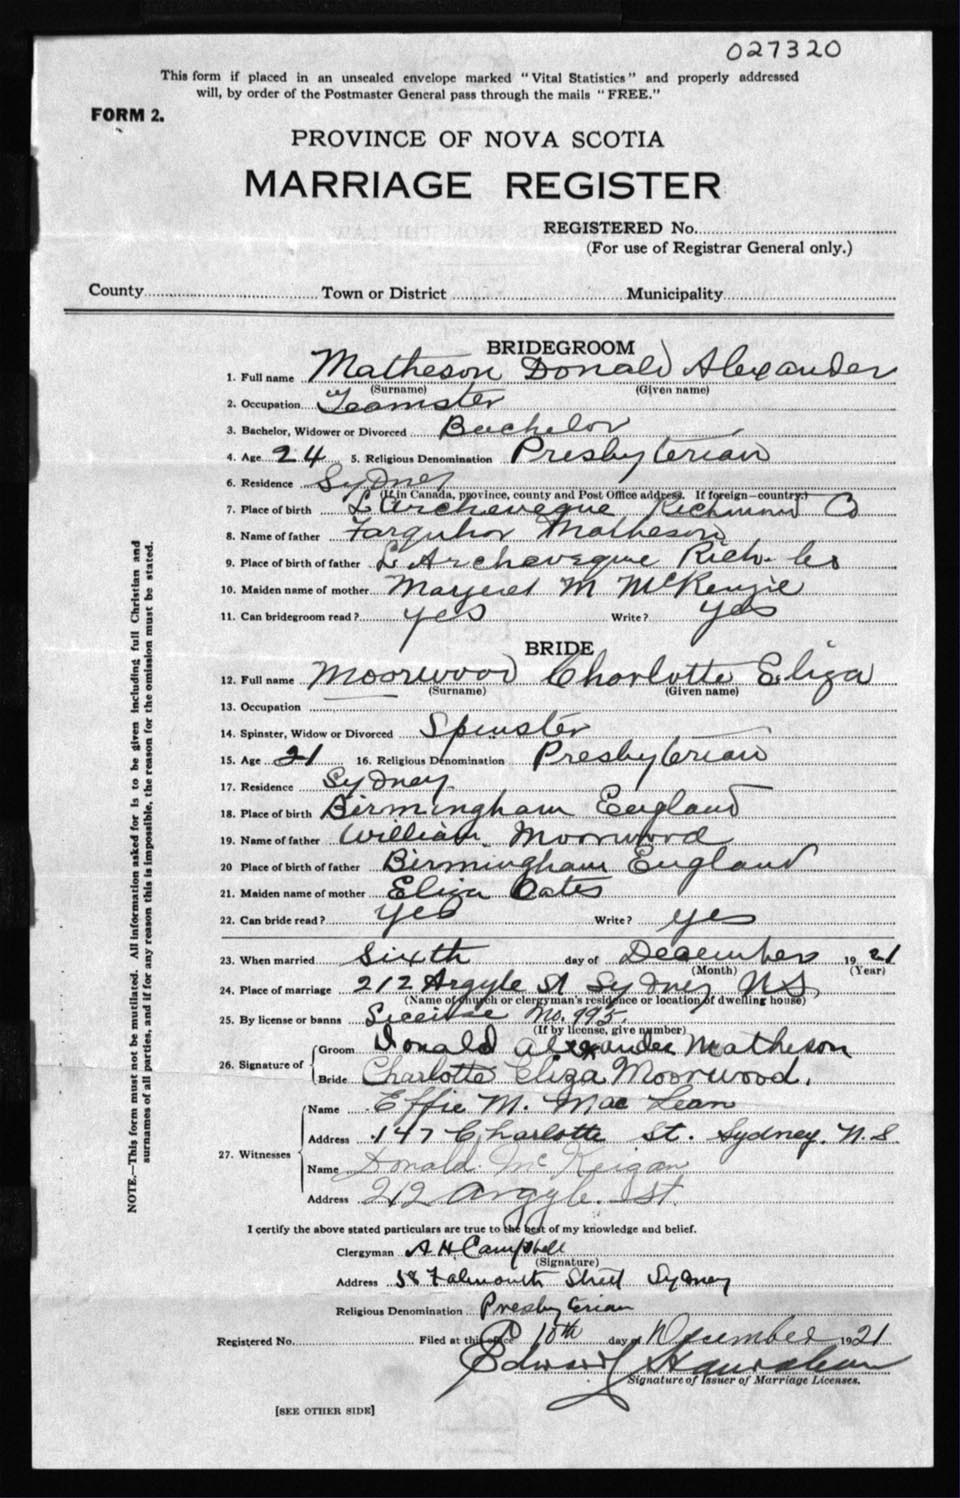 027320
This form if placed in an unsealed envelope marked "Vital Statistics" and properly addressed
will, by order of the Postmaster General pass through the mails "FREE."
FORM 2.
PROVINCE OF NOVA SCOTIA
MARRIAGE REGISTER
REGISTERED No.
(For use of Registrar General only.)
County Town or District Municipality
BRIDEGROOM
1. Full name Matheson Donald Alexander
(Surname) (Given name)
2. Occupation Teamster
3. Bachelor, Widower or Divorced Bachelor
4. Age 24 5. Religious Denomination Presbyterian
6. Residence Sydney
(If in Canada, province, county and Post Office address. If foreign—country.)
7. Place of birth L'Archeveque Richmond Co
8. Name of father Farquhar Matheson
9. Place of birth of father L'Archeveque Rich. Co
10. Maiden name of mother Margeret M McKenzie
11. Can bridegroom read? yes Write? yes
BRIDE
12. Full name Moorwood Charlotte Eliza
(Surname) (Given name)
13. Occupation
14. Spinster, Widow or Divorced Spinster
15. Age 21 16. Religious Denomination Presbyterian
17. Residence Sydney
18. Place of birth Birmingham England
19. Name of father William Moorwood
20 Place of birth of father Birmingham England
21. Maiden name of mother Eliza Oates
22. Can bride read? yes Write? yes
23. When married Sixth day of December 1921
(Month) (Year)
24. Place of marriage 212 Argyle St Sydney N.S.
(Name of church or clergyman's residence or location of dwelling house)
25. By license or banns License No. 995.
(If by license, give number)
26. Signature of Groom Donald Alexander Matheson
Bride Charlotte Eliza Moorwood.
27. Witnesses Name Effie M. MacLean
Address 147 Charlotte St. Sydney. N.S.
Name Donald McKeigan
Address 212 Argyle. St.
I certify the above stated particulars are true to the best of my knowledge and belief.
Clergyman A H Campbell
(Signature)
Address 58 Falmouth Street Sydney
Religious Denomination Presbyterian
Registered No. Filed at this office 10th day of December 1921
Edward
Signature of Issuer of Marriage Licenses.
[SEE OTHER SIDE]
NOTE.—This form must not be mutilated. All information asked for is to be given including full Christian and
surnames of all parties, and if for any reason this is impossible, the reason for the omission must be stated.